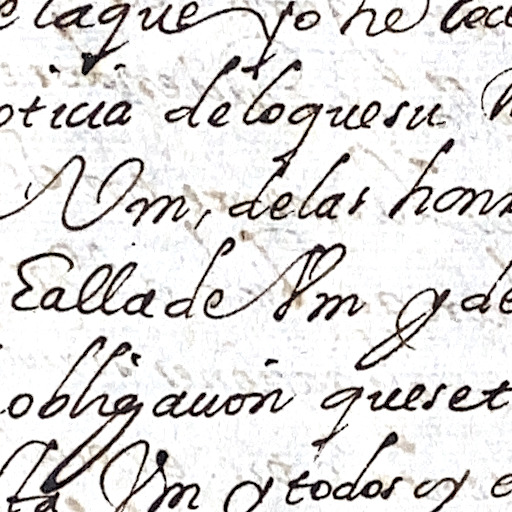 elaque yo he
oticia deloquesu
Vm, delas honr
Calla de Vm y de
obligacion queset
ta Vm y todos oy